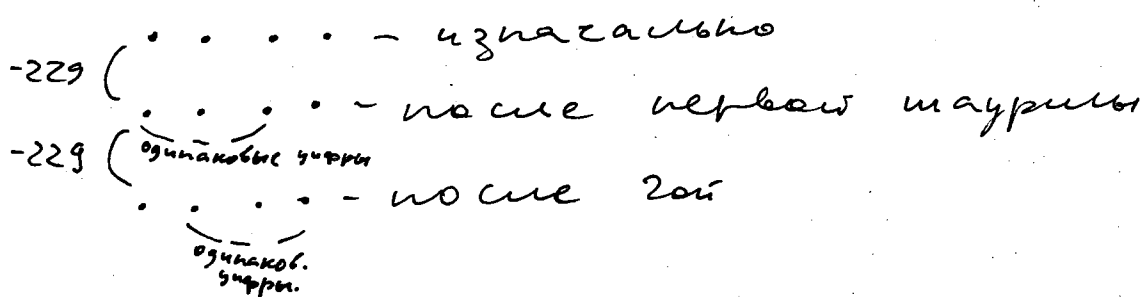 . . . . - изначально
-229 (
. . . . - после первой шаурмы
одинаковые цифры
-229 (
. . . . - после 2ой
одинаков.
цифры.